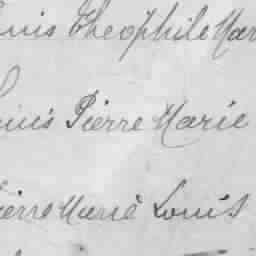 Théophile Mar
Pierre Marie
Pierre Marie Louis